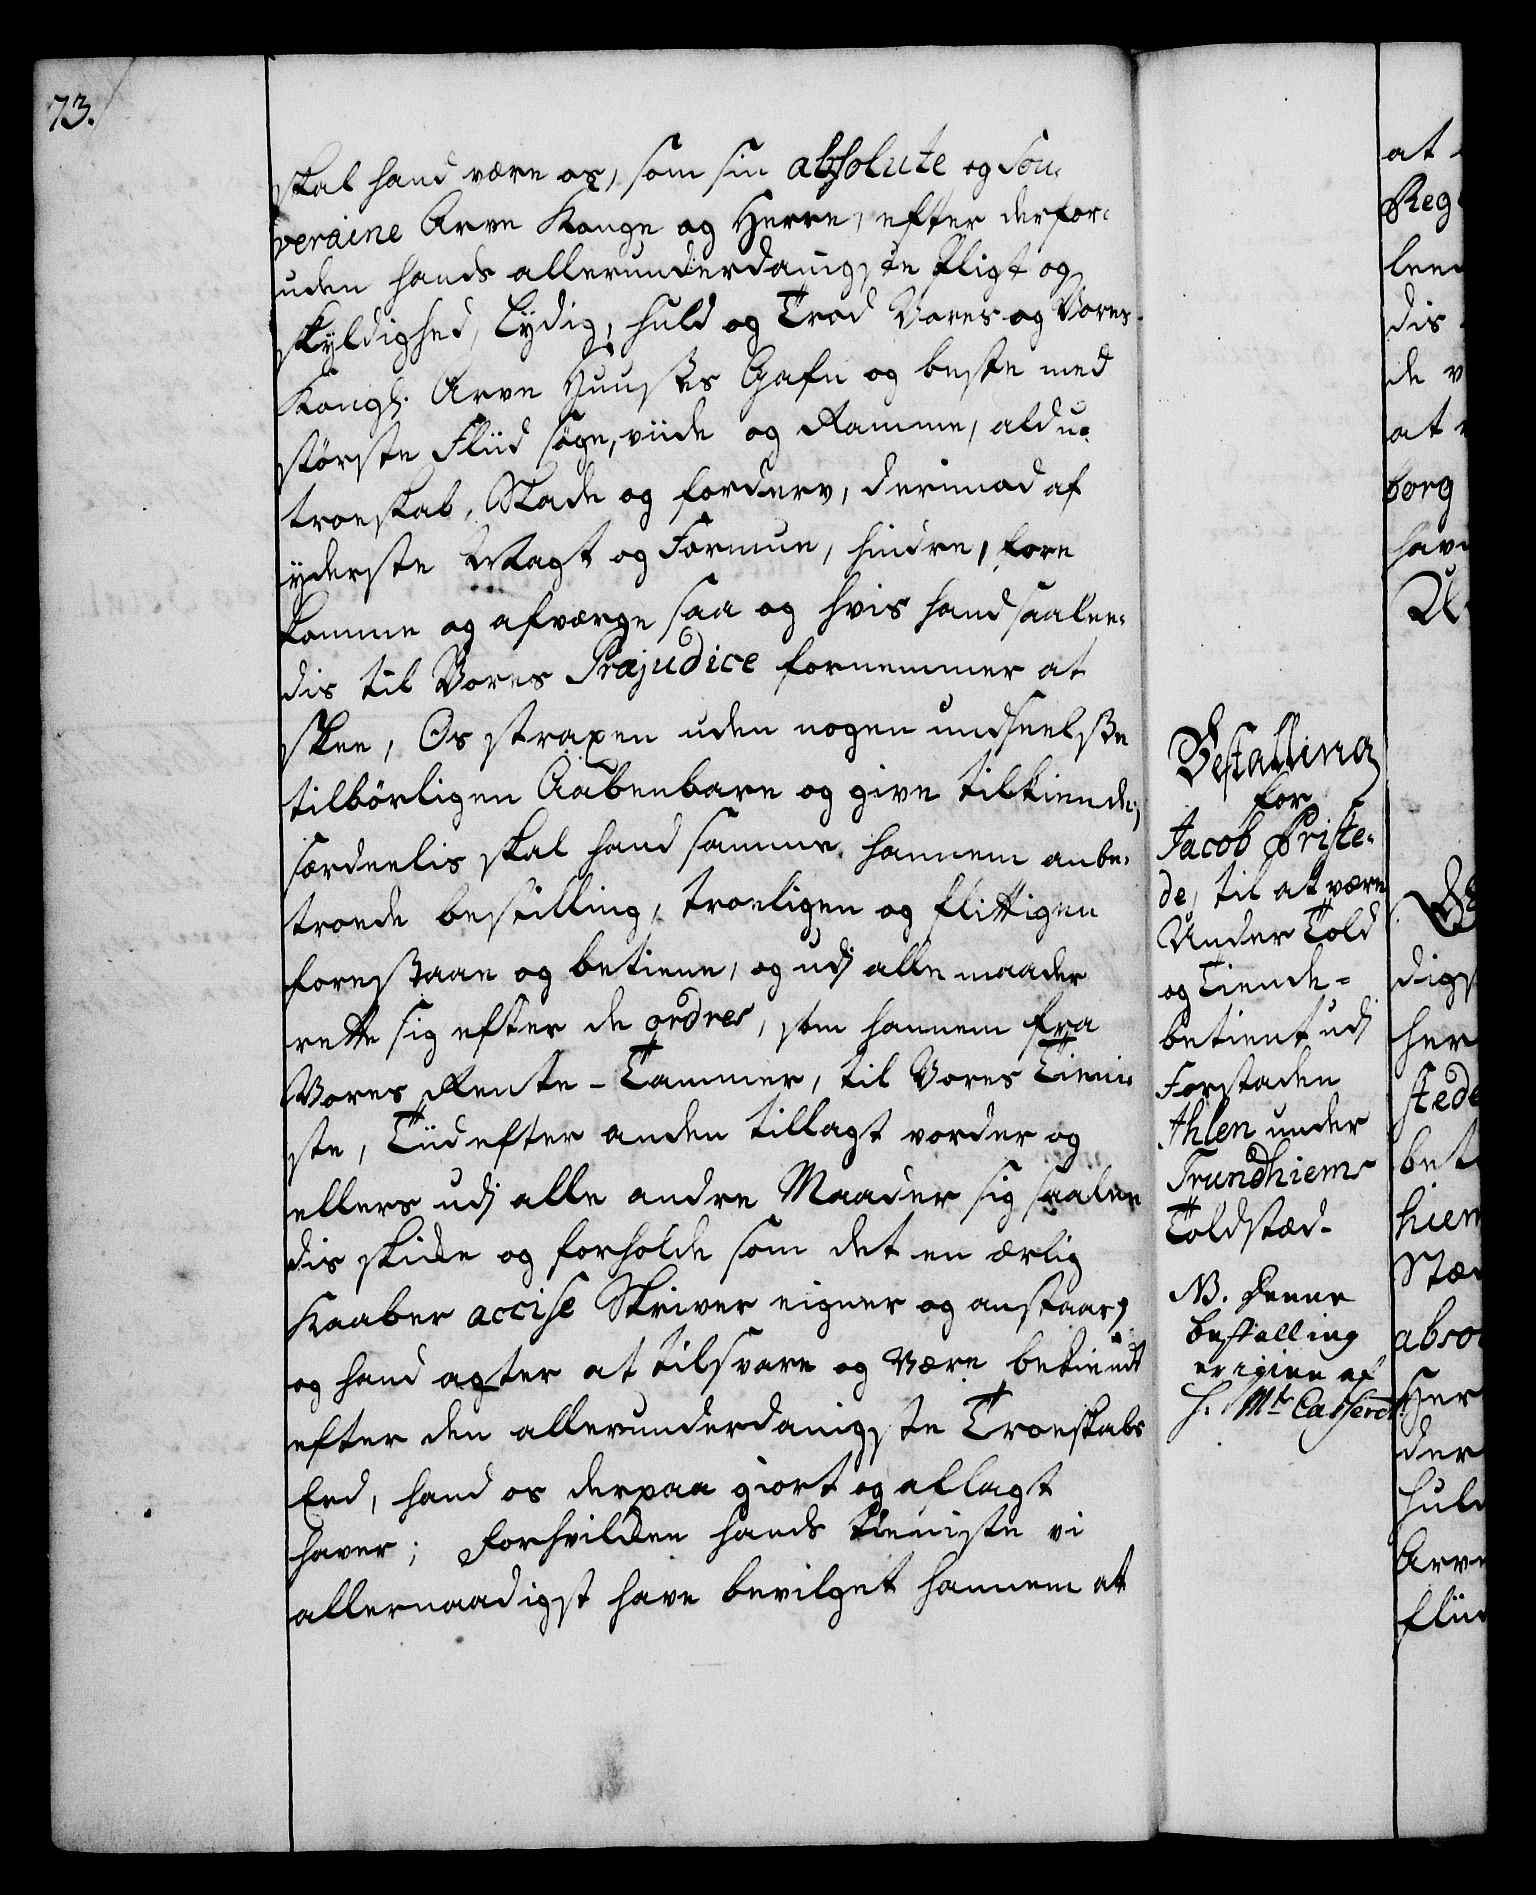 73.
skal hand være os, som sin absolute og Sou-
veraine Arve Konge og Herre, efter derfor-
uden hands allerunderdanigste Pligt og
skyldighed, Lydig, huld og Troe Vores og Vores
Kongl. Arve Huuses Gafn og beste med
største Fliid søge, viide og Ramme, ald u-
troeskab, Skade og forderv, derimod af
yderste Magt og Formue, hindre, fore
komme og afværge saa og hvis hand saalee-
dis til Vores Præjudice fornemmer at
skee, Os straxen uden nogen undseelse
tilbørligen Aabenbare og give tilkiende,
særdeelis skal hand samme hannem anbe-
troede bestilling, troeligen og flittigen
forestaae og betiene, og udj alle maader
rette sig efter de ordres, som hannem fra
Vores Rente-Cammer, til Vores Tieni-
ste, Tiid efter anden tillagt vorder og
ellers udj alle andre Maader sig saalee
dis skikke og forholde som det en ærlig
Kaaber accise Skriver eigner og anstaar,
og hand agter at tilsvare og være bekiendt
efter den allerunderdanigste Troeskabs
Eed, hand os derpaa giort og aflagt
haver; Forhvilken hands tieniste vi
allernaadigst have bevilget hannem at
Bestalling
for
Jacob Friste-
de, til at være
Under Told
og Tiende-
betient udj
Forstaden
Ihlen under
Trundhiems
Toldstæd
NB. denne
bestalling
er igien af
H. Mt. Casseret.
at
Reg
leen
dis
de v
at
borg
have
digs
her
stede
bet
hiem
Stæd
abso
Her
der
huld
Arve
fliid